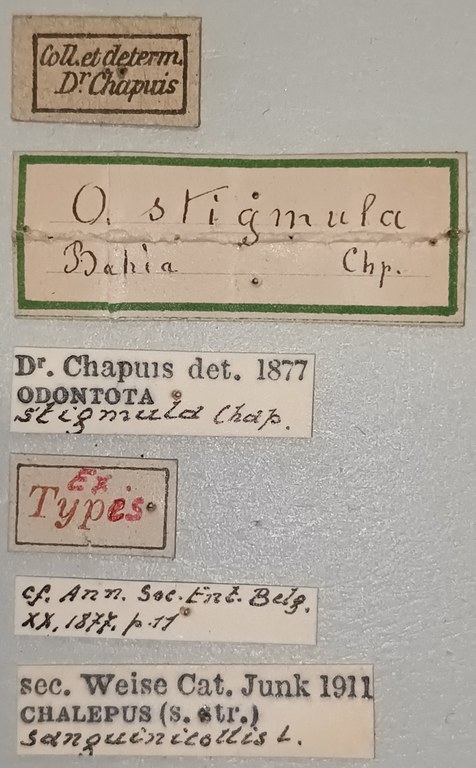 Coll. et determ.
Dr. Chapuis
O. stigmula
Bahia Chp.
Dr. Chapuis det. 1877
ODONTOTA
stigmula Chap.
Ex.
Types
cf. Ann. Soc. Ent. Belg.
XX, 1877. p. 11
sec. Weise Cat. Junk 1911
CHALEPUS (s. str.)
sanguinicollis L.